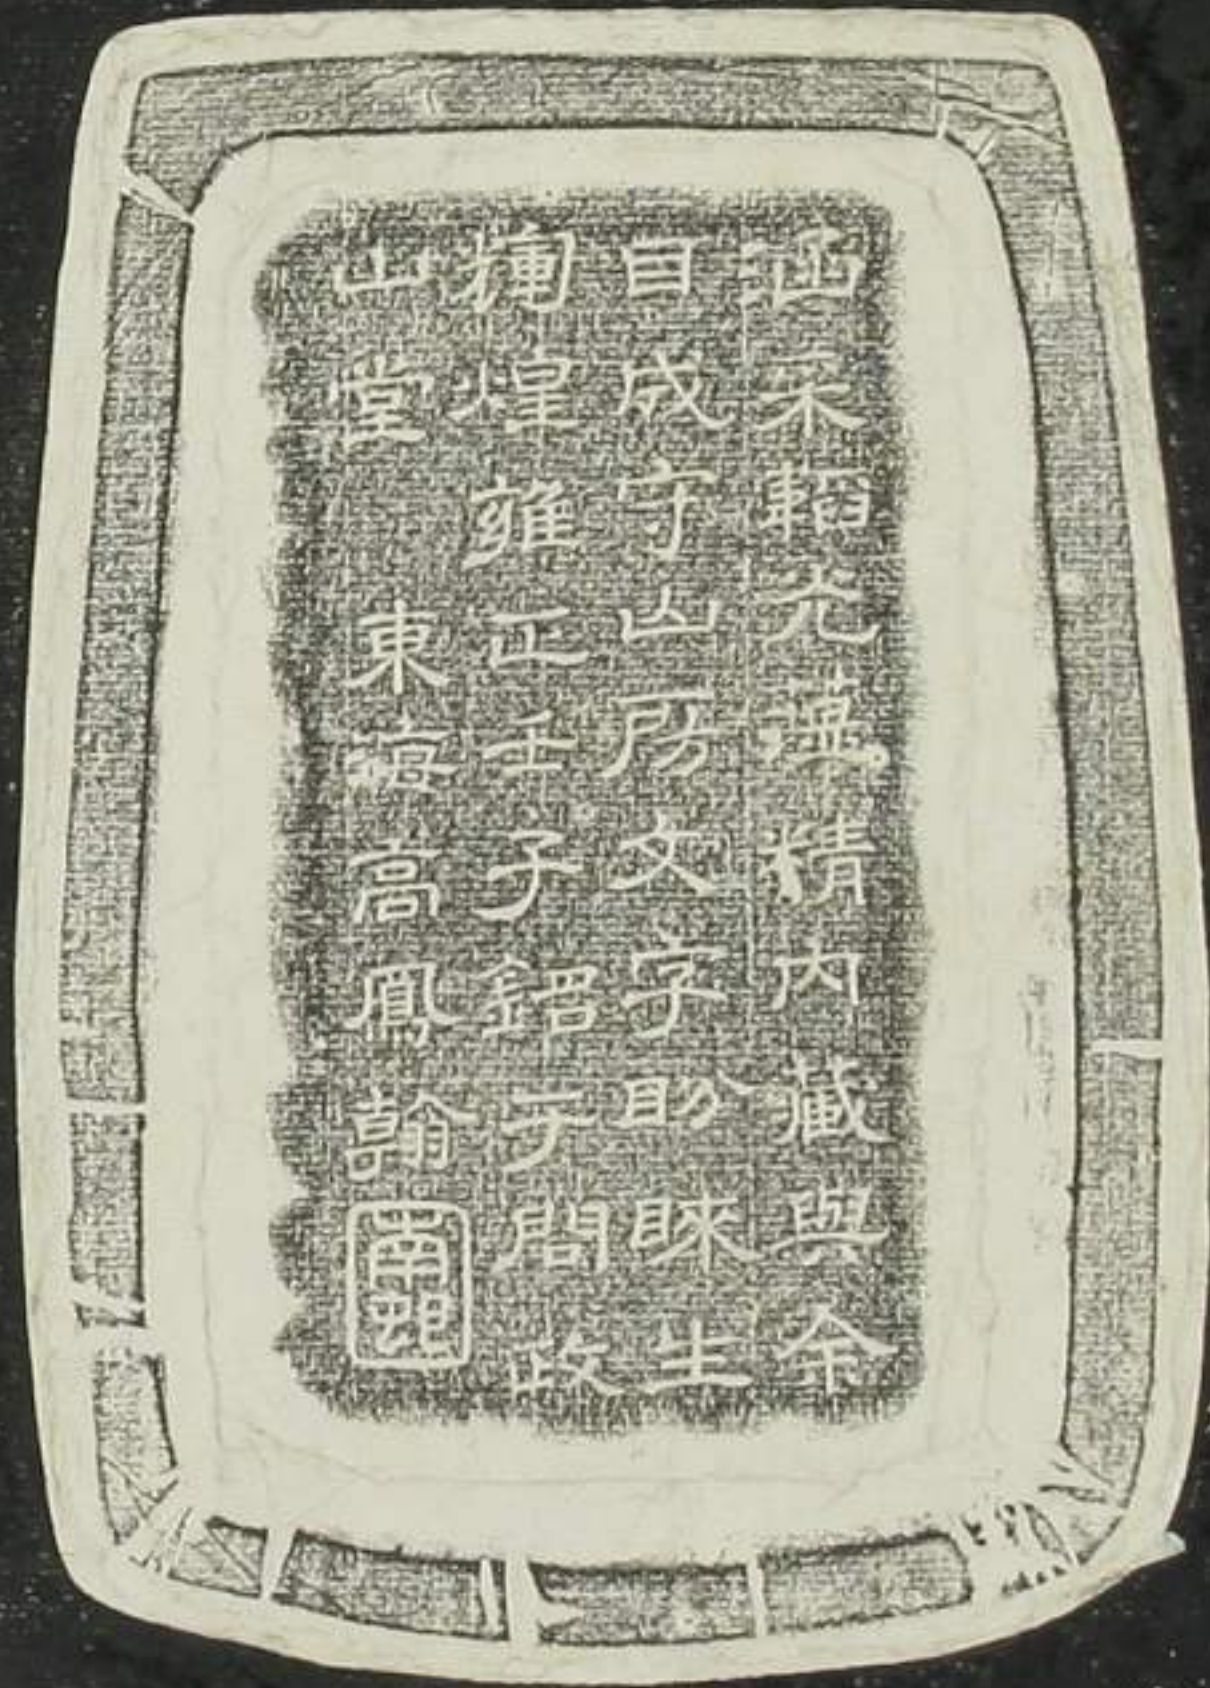 涵采韜光薀精內藏與余
目成守山房文字助睞生
輝煌雍正壬子銘于問政
山堂 東海高鳳翰
南邨